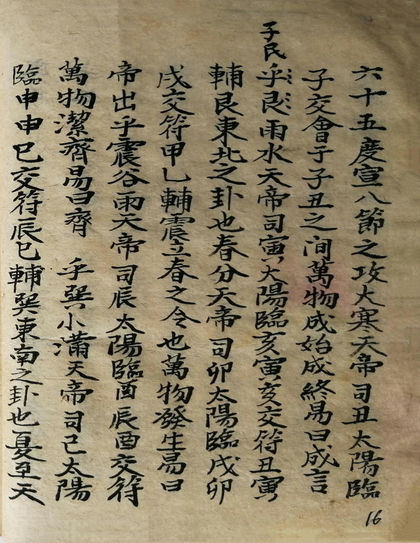 六十五度宣八節之攻大寒天帝司丑太陽臨
子交會于子丑之间萬物成始成終易曰成言
子民
乎艮雨水天帝司寅太陽臨亥寅亥交符丑寅
輔艮東北之卦也春分天帝司卯太陽臨戌卯
戌交符甲乚輔震立春之令也萬物發生易曰
帝出乎震谷雨天帝司辰太陽臨酉辰酉交符
萬物潔齊易曰齊 乎巽小滿天帝司己太陽
臨申申巳交符辰巳輔巽東南之卦也夏至天
16